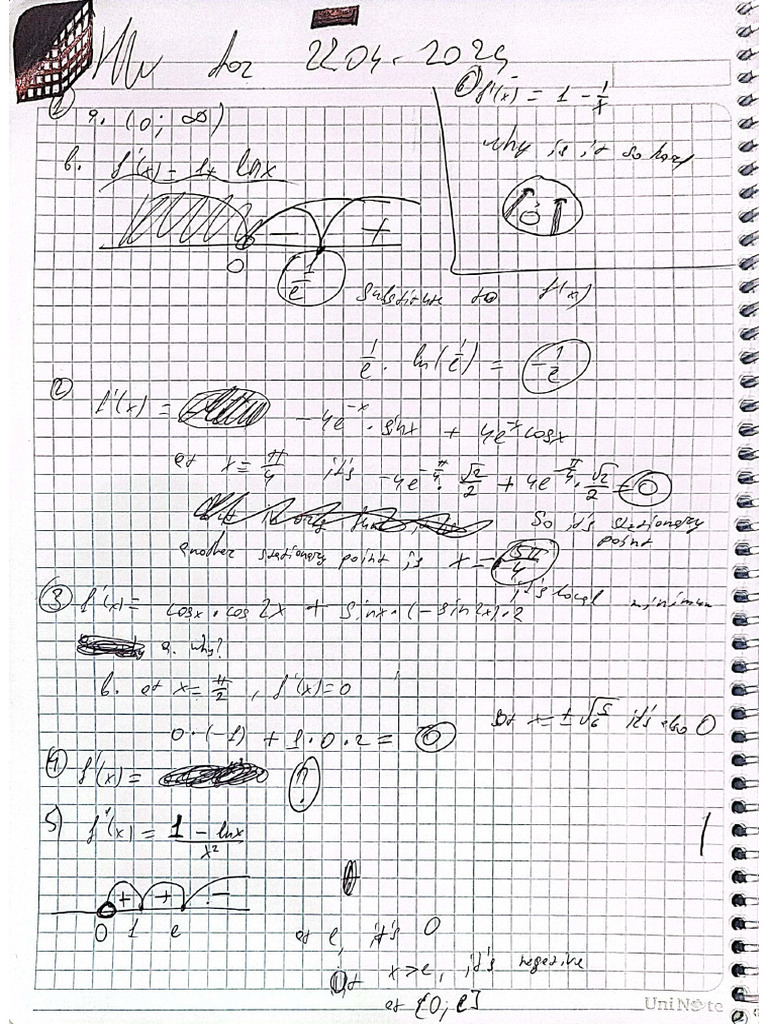 HW for 22.04.2024
① a. (0; ∞)
b. f'(x) = 1 + lnx
- +
0 1/e
substitute to f(x)
1/e · ln(1/e) = -1/e
⑥ f'(x) = 1 - 1/x
why is it so hard
② f'(x) = -4e^-x · sinx + 4e^-x cosx
at x = π/4 it's -4e^-π/4 · √2/2 + 4e^-π/4 · √2/2 = 0
So it's stationary point
another stationary point is x = 5π/4
it's local minimum
③ f'(x) = cosx · cos 2x + sinx · (-sin2x) · 2
a. why?
b. at x = π/2, f'(x) = 0
0 · (-1) + 1 · 0 · 2 = 0
at x = ±√5/6 it's also 0
④ f'(x) = ?
5) f'(x) = 1 - lnx / x²
+ + -
0 1 e
at e, it's 0
at x>e, it's negative
at {0; e]
UniNote